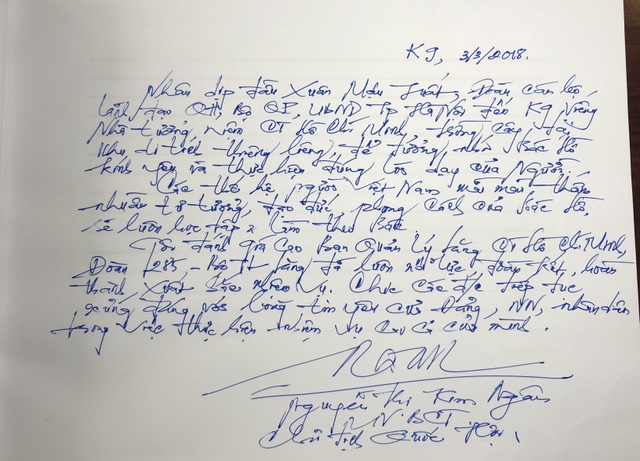 K9, 3/3/2018.
Nhân dịp đầu Xuân Mậu Tuất, Đoàn cán bộ
lãnh đạo QH, Bộ QP, UBND Tp Hà Nội đến K9 viếng
Nhà tưởng niệm CT Hồ Chí Minh, trồng cây tại
Khu di tích thiêng liêng, để tưởng nhớ Bác Hồ
kính yêu và thực hiện đúng lời dạy của Người.
Các thế hệ người Việt Nam mãi mãi thấm
nhuần tư tưởng, đạo đức, phong cách của Bác Hồ,
sẽ luôn học tập & làm theo Bác.
Tôi đánh giá cao Ban Quản lý Lăng CT Hồ Chí Minh,
Đoàn 285 - Bộ TL Lăng đã luôn nỗ lực, đoàn kết, hoàn
thành xuất sắc nhiệm vụ. Chúc các đ/c tiếp tục
xứng đáng với lòng tin yêu của Đảng, NN, nhân dân
trong việc thực hiện nhiệm vụ cao cả của mình.
Nguyễn Thị Kim Ngân
UV.BCT
Chủ tịch Quốc Hội